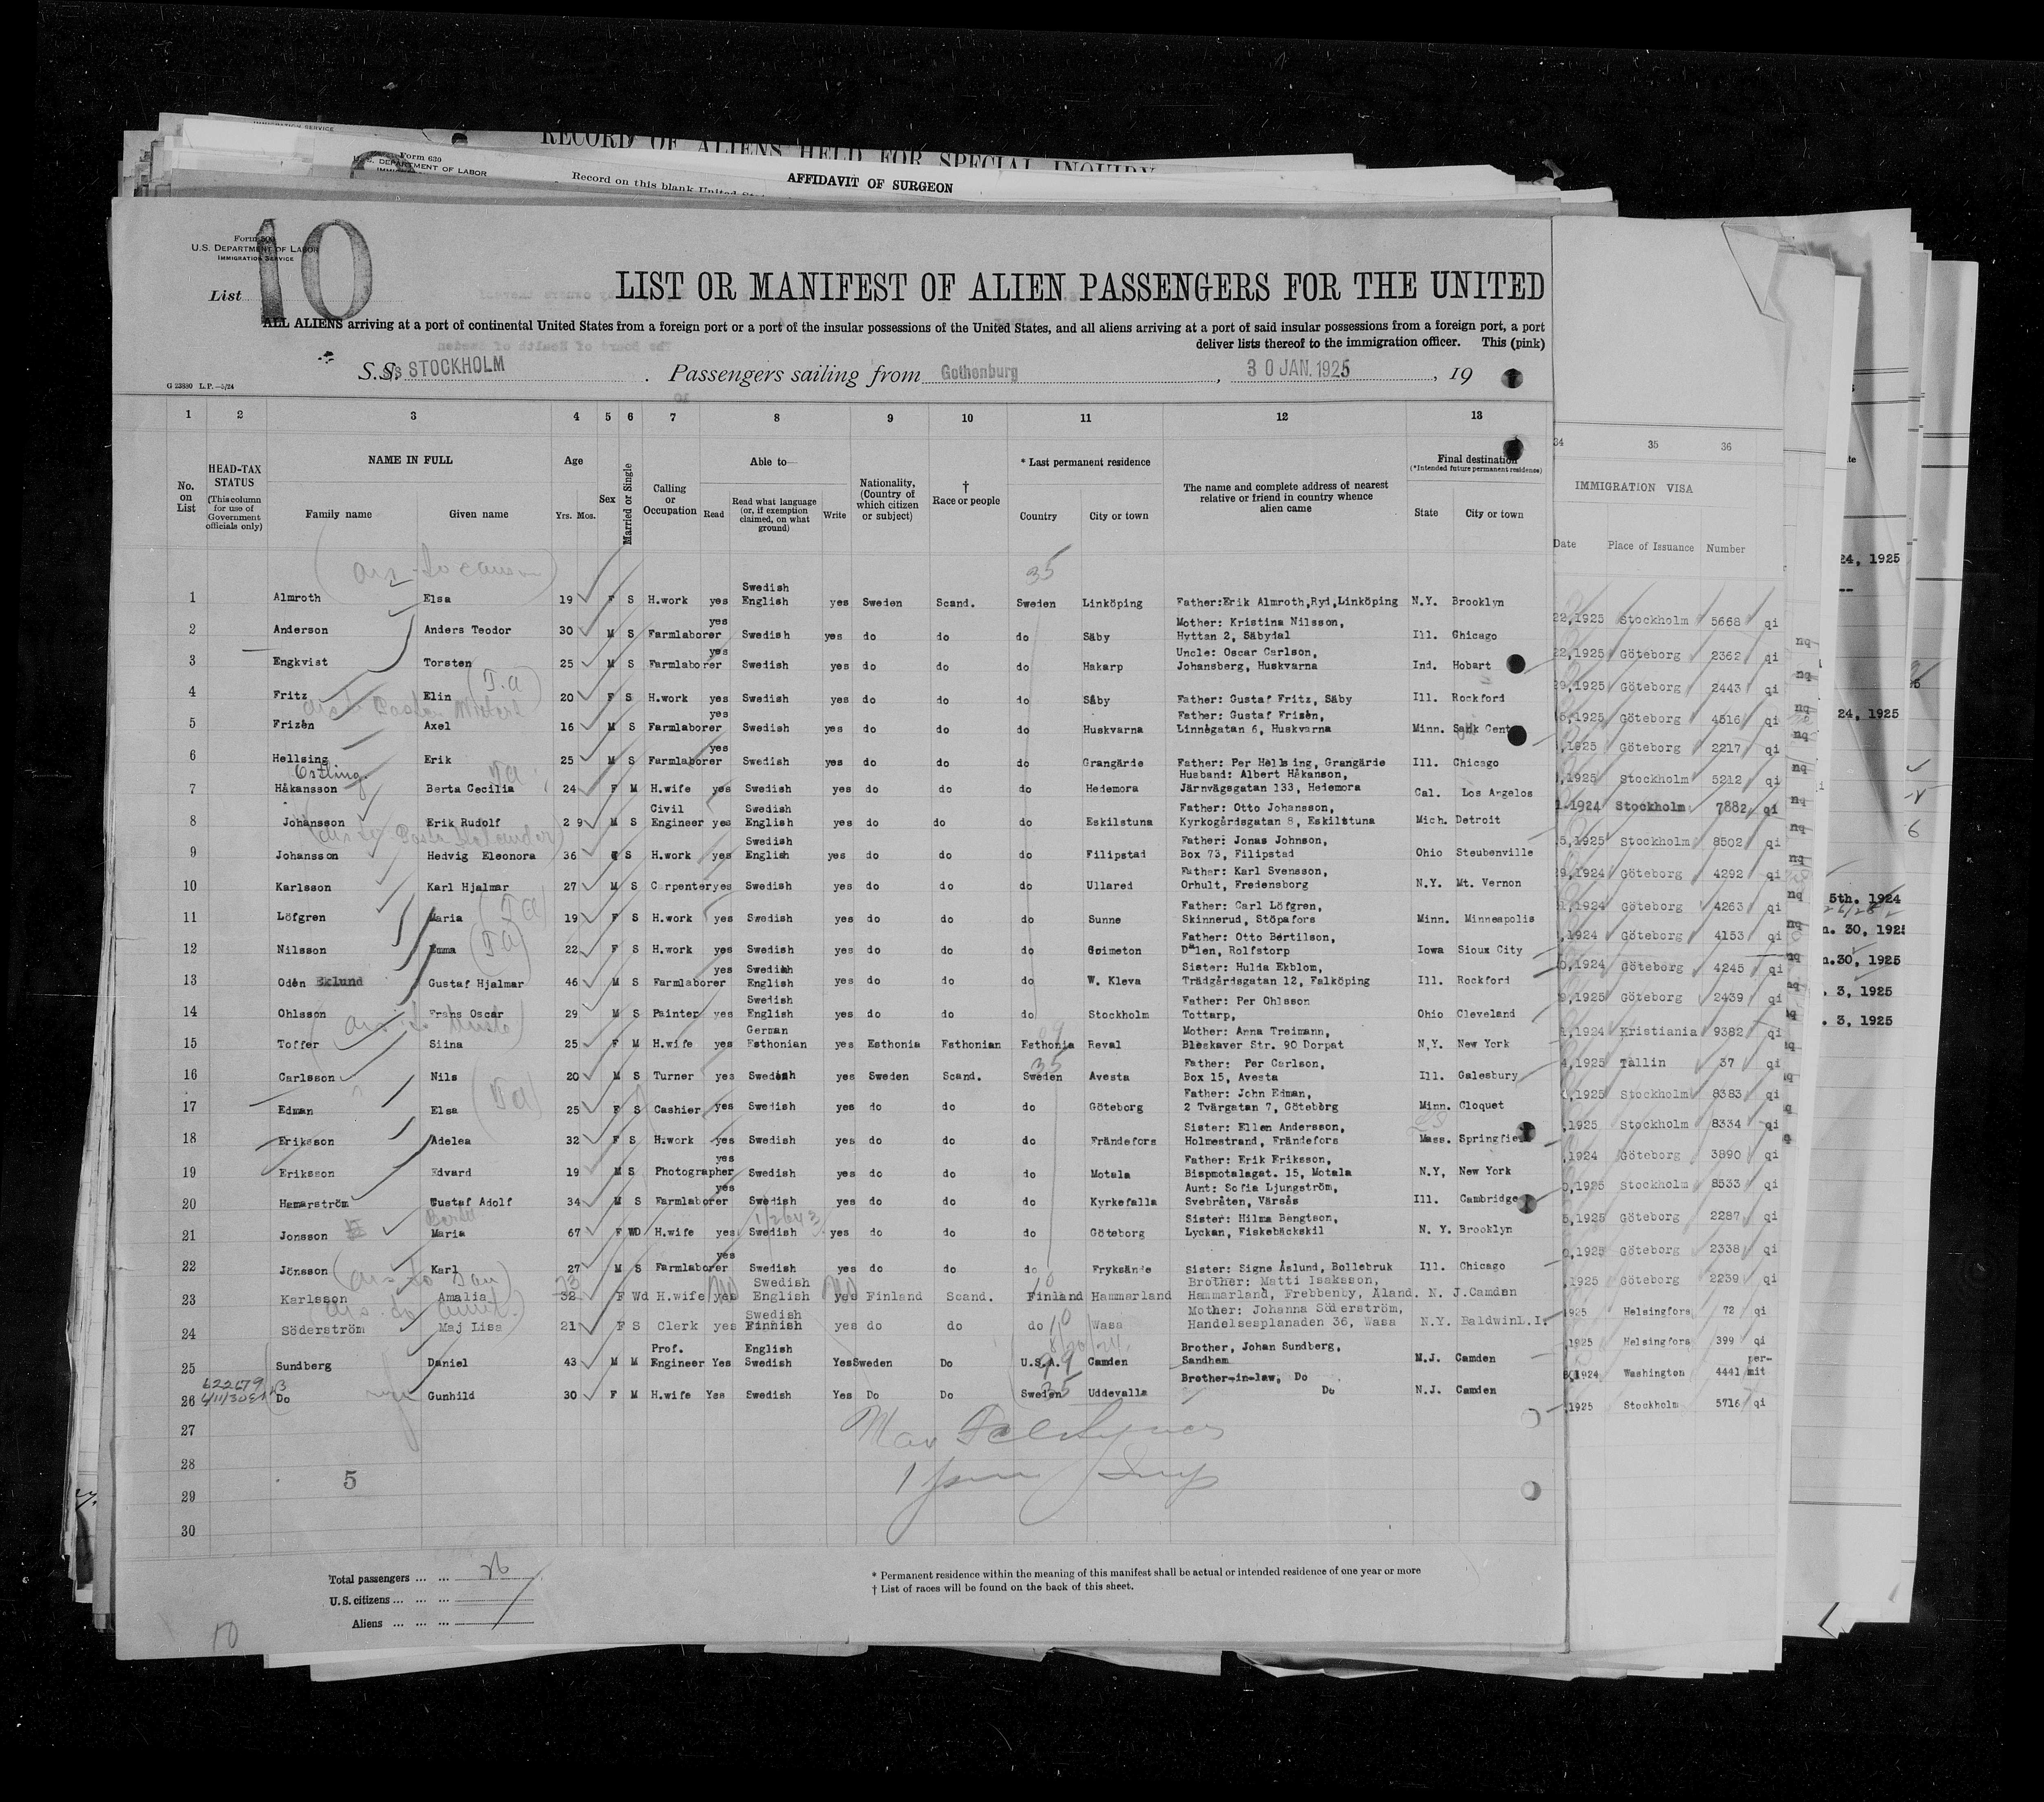 RECORD OF ALIENS HELD FOR SPECIAL INQUIRY
Form 630
U.S. DEPARTMENT OF LABOR
Record on this blank United
AFFIDAVIT OF SURGEON
10
U.S. DEPARTMENT OF LABOR
IMMIGRATION SERVICE
List
LIST OR MANIFEST OF ALIEN PASSENGERS FOR THE UNITED
ALL ALIENS arriving at a port of continental United States from a foreign port or a port of the insular possessions of the United States, and all aliens arriving at a port of said insular possessions from a foreign port, a port
deliver lists thereof to the immigration officer. This (pink)
S.S. STOCKHOLM Passengers sailing from Gothenburg, 30 JAN. 1925, 19
G 23880 L.P.—5/24
1 2 3 4 5 6 7 8 9 10 11 12 13 34 35 36
No. on List
HEAD-TAX STATUS (This column for use of Government officials only)
NAME IN FULL
Family name Given name
Age Yrs. Mos.
Sex
Married or Single
Calling or Occupation
Able to—
Read Read what language (or, if exemption claimed, on what ground) Write
Nationality, (Country of which citizen or subject)
† Race or people
* Last permanent residence
Country City or town
The name and complete address of nearest relative or friend in country whence alien came
Final destination (*Intended future permanent residence)
State City or town
IMMIGRATION VISA
Date Place of Issuance Number
35
1 Almroth Elsa 19 F S H.work yes Swedish English yes Sweden Scand. Sweden Linköping Father:Erik Almroth,Ryd,Linköping N.Y. Brooklyn 22,1925 Stockholm 5668 qi
2 Anderson Anders Teodor 30 M S Farmlaborer yes Swedish yes do do do Säby Mother: Kristina Nilsson, Hyttan 2, Säbydal Ill. Chicago 22,1925 Göteborg 2362 qi
3 Engkvist Torsten 25 M S Farmlaborer yes Swedish yes do do do Hakarp Uncle: Oscar Carlson, Johansberg, Huskvarna Ind. Hobart 29,1925 Göteborg 2443 qi
4 Fritz Elin 20 F S H.work yes Swedish yes do do do Säby Father: Gustaf Fritz, Säby Ill. Rockford 1925 Göteborg 4516 qi
5 Frizén Axel 16 M S Farmlaborer yes Swedish yes do do do Huskvarna Father: Gustaf Frizén, Linnégatan 6, Huskvarna Minn. Cent 1925 Göteborg 2217 qi
6 Hellsing Erik 25 M S Farmlaborer yes Swedish yes do do do Grangärde Father: Per Hellsing, Grangärde Ill. Chicago 1925 Stockholm 5212 qi
7 Håkansson Berta Cecilia 24 F M H.wife yes Swedish yes do do do Hedemora Husband: Albert Håkanson, Järnvägsgatan 133, Hedemora Cal. Los Angelos 1924 Stockholm 7882 qi
8 Johansson Erik Rudolf 29 M S Civil Engineer yes Swedish English yes do do do Eskilstuna Father: Otto Johansson, Kyrkogårdsgatan 8, Eskilstuna Mich. Detroit 1925 Stockholm 8502 qi
9 Johansson Hedvig Eleonora 36 S H.work yes Swedish English yes do do do Filipstad Father: Jonas Johnson, Box 73, Filipstad Ohio Steubenville 1924 Göteborg 4292 qi
10 Karlsson Karl Hjalmar 27 M S Carpenter yes Swedish yes do do do Ullared Father: Karl Svensson, Orhult, Fredensborg N.Y. Mt. Vernon 1924 Göteborg 4263 qi
11 Löfgren Maria 19 F S H.work yes Swedish yes do do do Sunne Father: Carl Löfgren, Skinnerud, Stöpafors Minn. Minneapolis 1924 Göteborg 4153 qi
12 Nilsson Emma 22 F S H.work yes Swedish yes do do do Father: Otto Bertilson, Rolfstorp Iowa Sioux City 1924 Göteborg 4245 qi
13 Odén Eklund Gustaf Hjalmar 46 M S Farmlaborer yes Swedish English yes do do do W. Kleva Sister: Hulda Ekblom, Trädgårdsgatan 12, Falköping Ill. Rockford 1925 Göteborg 2439 qi
14 Ohlsson Frans Oscar 29 M S Painter yes Swedish English yes do do do Stockholm Father: Per Ohlsson Tottarp, Ohio Cleveland 1924 Kristiania 9382 qi
15 Toffer Siina 25 F M H.wife yes German Esthonian yes Esthonia Esthonian Esthonia Reval Mother: Anna Treimann, Bleskaver Str. 90 Dorpat N.Y. New York 1925 Tallin 37 qi
16 Carlsson Nils 20 M S Turner yes Swedish yes Sweden Scand. Sweden Avesta Father: Per Carlson, Box 15, Avesta Ill. Galesbury 1925 Stockholm 8383 qi
17 Edman Elsa 25 F S Cashier yes Swedish yes do do do Göteborg Father: John Edman, 2 Tvärgatan 7, Göteborg Minn. Cloquet 1925 Stockholm 8334 qi
18 Eriksson Adelea 32 F S H.work yes Swedish yes do do do Frändefors Sister: Ellen Andersson, Holmestrand, Frändefors Mass. Springfiel 1924 Göteborg 3890 qi
19 Eriksson Edvard 19 M S Photographer yes Swedish yes do do do Motala Father: Erik Eriksson, Bispmotalagat. 15, Motala N.Y, New York 1925 Stockholm 8533 qi
20 Hamarström Gustaf Adolf 34 M S Farmlaborer yes Swedish yes do do do Kyrkefalla Aunt: Sofia Ljungström, Svebråten, Värsås Ill. Cambridge 1925 Göteborg 2287 qi
21 Jonsson Maria 67 F WD H.wife yes Swedish yes do do do Göteborg Sister: Hilma Bengtson, Lyckan, Fiskebäckskil N. Y. Brooklyn 1925 Göteborg 2338 qi
22 Jönsson Karl 27 M S Farmlaborer yes Swedish yes do do do Fryksände Sister: Signe Åslund, Bollebruk Ill. Chicago 1925 Göteborg 2239 qi
23 Karlsson Amalia 32 F Wd H.wife yes Swedish English yes Finland Scand. Finland Hammarland Brother: Matti Isaksson, Hammarland, Frebbenby, Åland. N. J. Camden 1925 Helsingfors 72 qi
24 Söderström Maj Lisa 21 F S Clerk yes Swedish Finnish yes do do do Wasa Mother: Johanna Söderström, Handelsesplanaden 36, Wasa N.Y. BaldwinL.I. 1925 Helsingfors 399 qi
25 Sundberg Daniel 43 M M Prof. Engineer Yes English Swedish Yes Sweden Do U.S.A. Camden Brother, Johan Sundberg, Sandhem N.J. Camden 1924 Washington 4441 per-mit
26 Do Gunhild 30 F M H.wife Yes Swedish Yes Do Do Sweden Uddevalla Brother-in-law, Do Do N.J. Camden 1925 Stockholm 5716 qi
27
28
5
29
30
Total passengers ... ... 26
U.S. citizens ... ... ...
Aliens ... ... ...
* Permanent residence within the meaning of this manifest shall be actual or intended residence of one year or more
† List of races will be found on the back of this sheet.
10
24, 1925
24, 1925
5th. 1924
30, 1925
.30, 1925
. 3, 1925
. 3, 1925